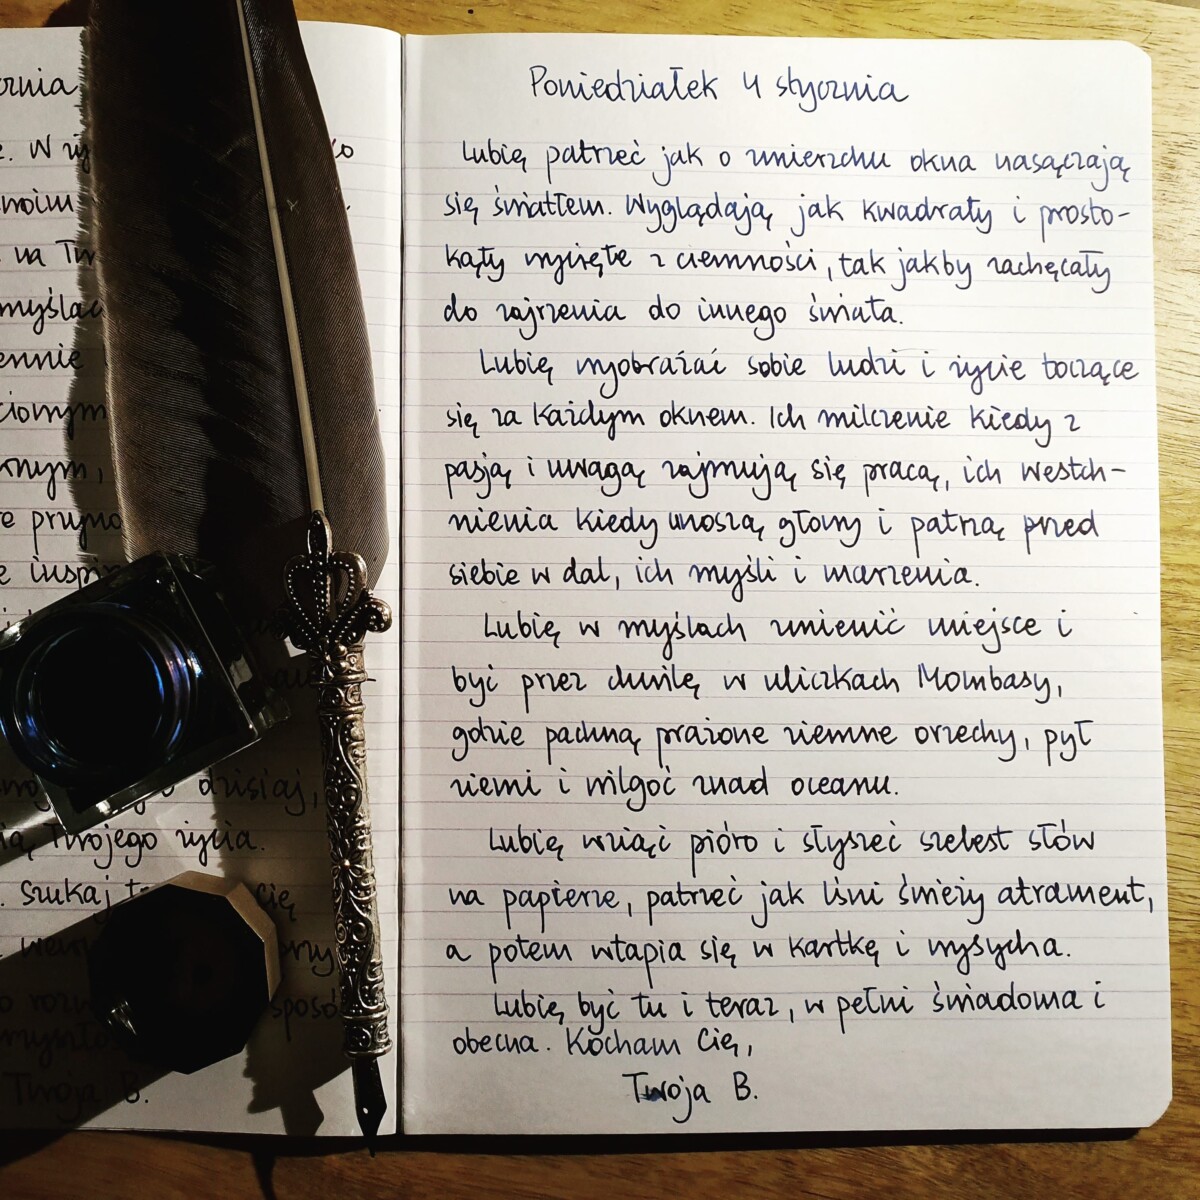 rznia
. W
moim
na Tw
myślac
ennie
ciowym
rnym,
e przyno
e inspi
dzisiaj,
ią Twojego życia.
. Szukaj
Cię
sposó
Twoja B.
Poniedziałek 4 stycznia
Lubię patrzeć jak o zmierzchu okna nasączają
się światłem. Wyglądają jak kwadraty i prosto-
kąty wycięte z ciemności, tak jakby zachęcały
do zajrzenia do innego świata.
Lubię wyobrażać sobie ludzi i życie toczące
się za każdym oknem. Ich milczenie kiedy z
pasją i uwagą zajmują się pracą, ich westch-
nienia kiedy unoszą głowy i patrzą przed
siebie w dal, ich myśli i marzenia.
Lubię w myślach zmienić miejsce i
być przez chwilę w uliczkach Mombasy,
gdzie pachną prażone ziemne orzechy, pył
ziemi i wilgoć znad oceanu.
Lubię wziąć pióro i słyszeć szelest słów
na papierze, patrzeć jak lśni świeży atrament,
a potem wtapia się w kartkę i wysycha.
Lubię być tu i teraz, w pełni świadoma i
obecna. Kocham Cię,
Twoja B.